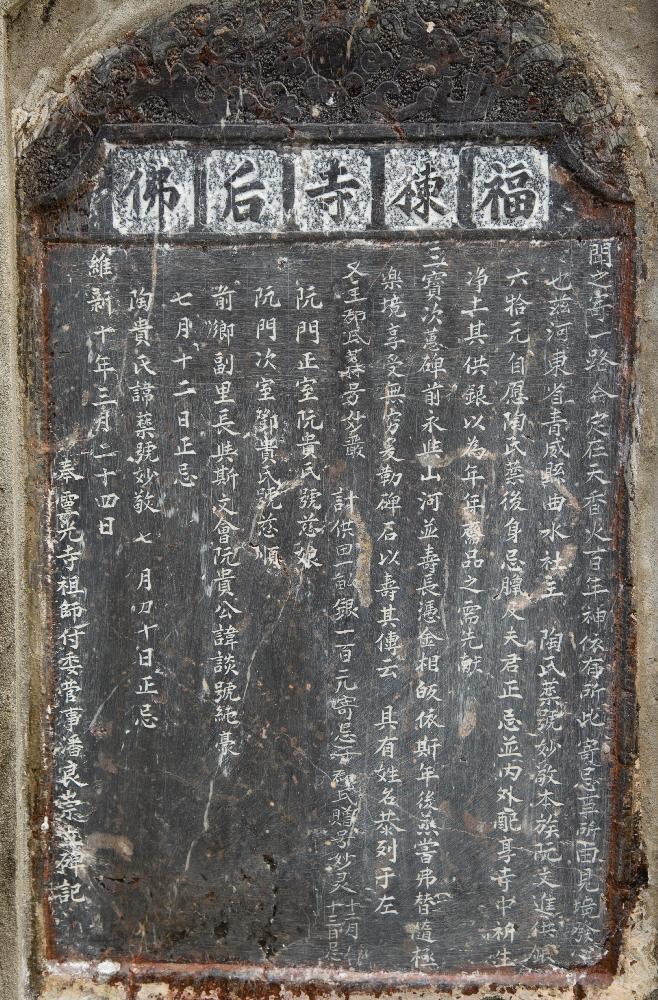 福㨂寺后佛
聞之寄一路今定在天香火百年神依有所此寄忌尊所由見境發
也茲河東省青威縣曲水社主 陶氏蕊號妙敬本族阮支進供銀
六拾元自愿陶氏蕊後身忌臘及夫君正忌並內外配享寺中祈生
净土其供銀以為年年薦品之需先献
三寶次蕙碑前永與山河並壽長憑金相皈依斯年後燕嘗弗替隨極
樂境享受無窮爰勒碑石以壽其傳云 具有姓名恭列于左
計供田一畝銀一百二元寄忌
阮門正室阮貴氏號慈娘
阮門次室鄧貴氏號慈順
前鄉副里長與斯文會阮貴公諱談號純豪
七月十二日正忌
陶貴氏諱蕊號妙敬 七月四十日正忌
維新十年三月二十四日
奉靈光寺祖師付委營事潘良崇立碑記